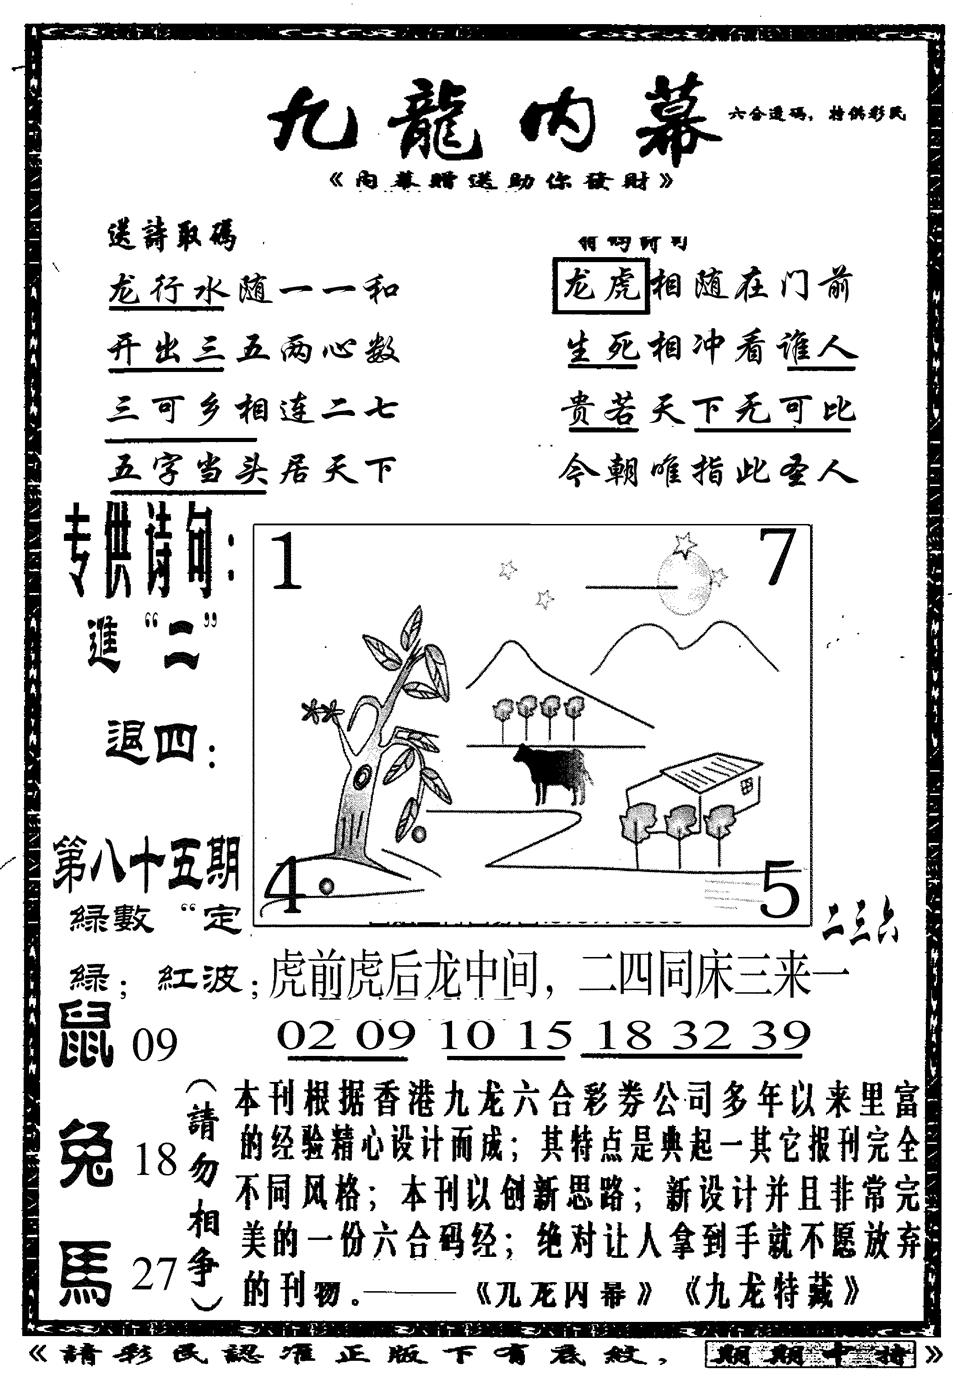 九龍内幕
六合透码，特供彩民
《内幕赠送助你發財》
送詩取碼
龙行水随一一和
开出三五两心数
三可乡相连二七
五字当头居天下
龙虎相随在门前
生死相冲看谁人
贵若天下无可比
今朝唯指此圣人
专供诗句：
進“二”
退四：
第八十五期
緑數“定
緑；紅波；
1
7
4
5
二三六
虎前虎后龙中间，二四同床三来一
02 09 10 15 18 32 39
鼠 09
兔 18
馬 27
（請勿相争）
本刊根据香港九龙六合彩券公司多年以来里富
的经验精心设计而成；其特点是典起一其它报刊完全
不同风格；本刊以创新思路；新设计并且非常完
美的一份六合码经；绝对让人拿到手就不愿放弃
的刊物。———《九龙内幕》《九龙特藏》
《請彩民認准正版下有底紋，期期十持》